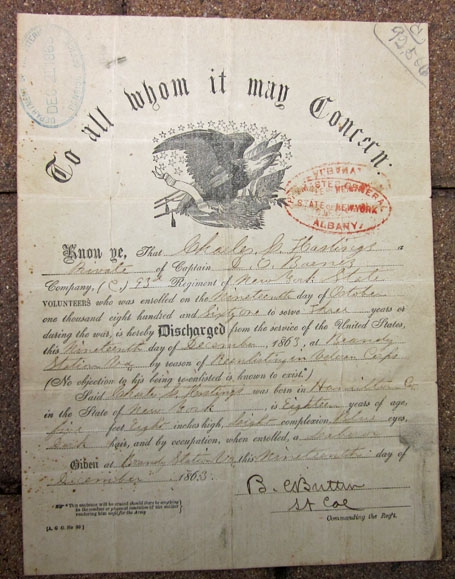 DEC 21 1863
92,566
To all whom it may Concern.
STATE OF NEW YORK
ALBANY
Know ye, That Charles C. Hastings a
Private of Captain
Company, (C.) 93d Regiment of New York State
VOLUNTEERS who was enrolled on the Nineteenth day of October
one thousand eight hundred and Sixty one to serve Three years or
during the war, is hereby Discharged from the service of the United States,
this Nineteenth day of December, 1863, at Brandy
Station Va by reason of Reenlisting in Veteran Corps
(No objection to his being reenlisted is known to exist.)
Said Charles C. Hastings was born in Hamilton Co
in the State of New York is Eighteen years of age,
five feet Eight inches high, light complexion, eyes,
Dark hair, and by occupation, when enrolled, a
Given at Brandy Station Va this Nineteenth day of
December 1863.
B. C. Butler
Lt Col
Commanding the Regt.
[A. G. O. No 99]